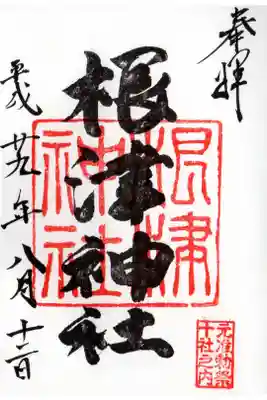 奉拝
根津神社
根津
神社
元准勅祭
十社之内
平成廿九年八月十二日